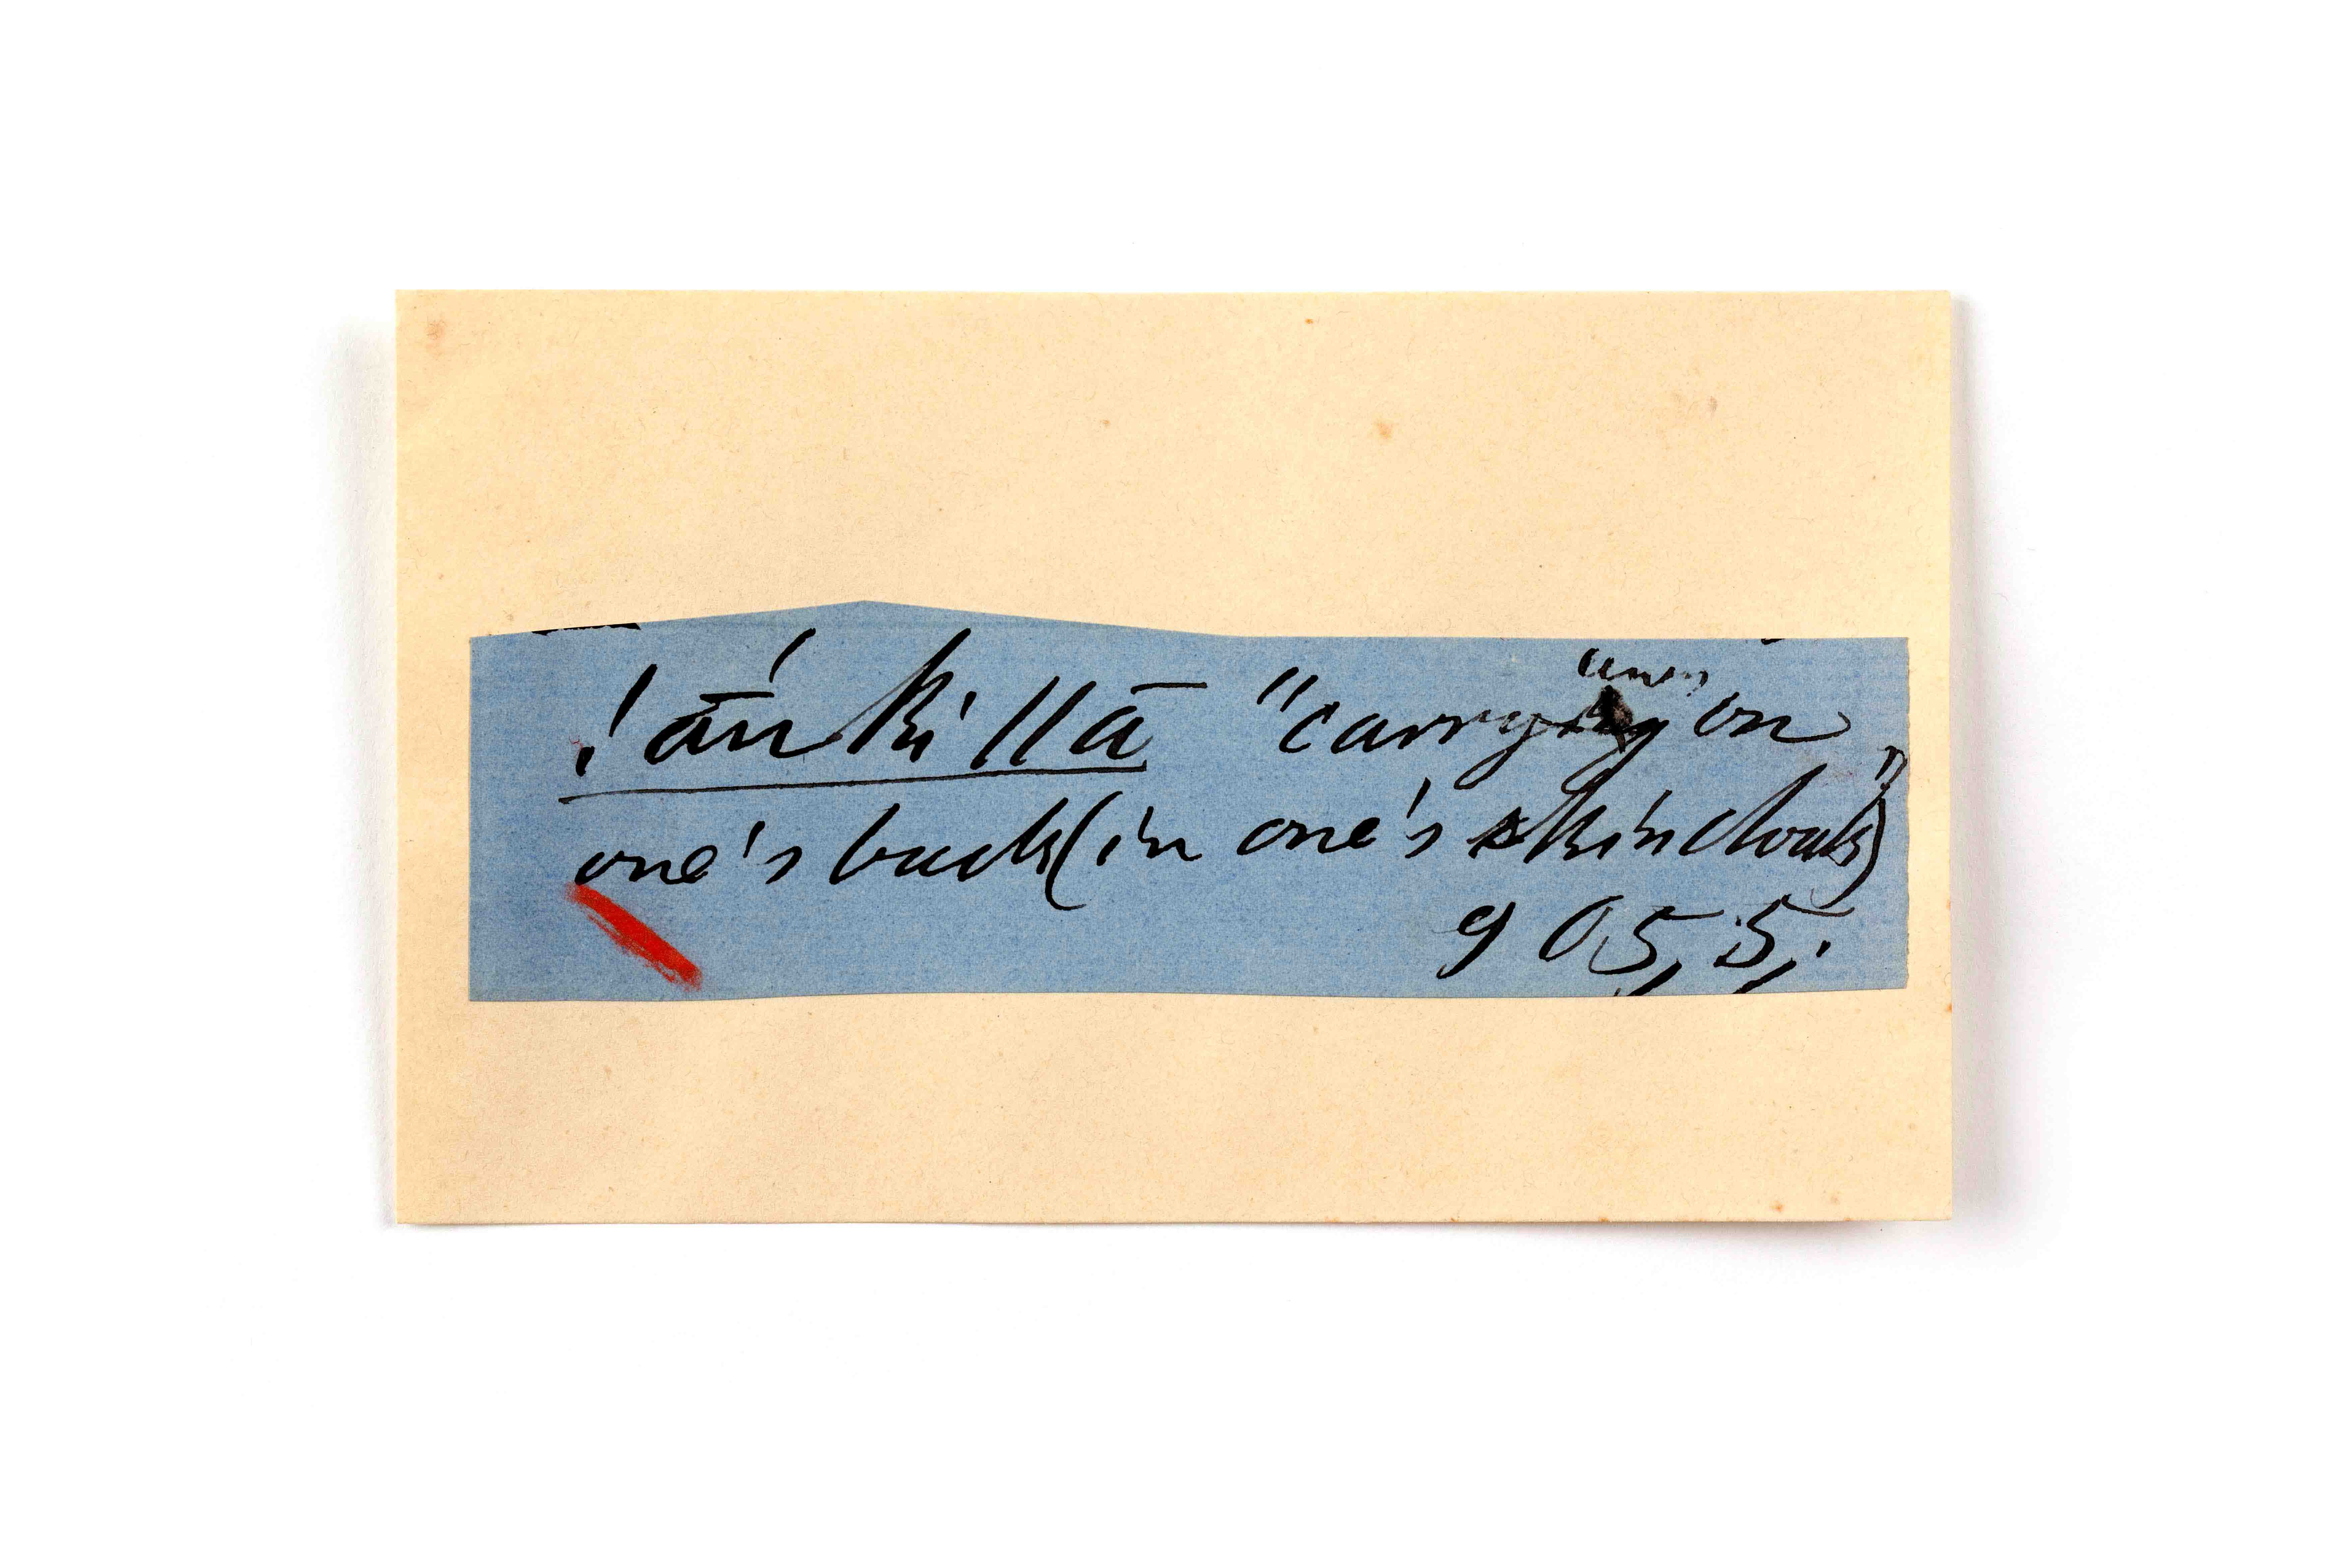 !āń ki llā "carry on
one's back (in one's skin cloak)"
9055.